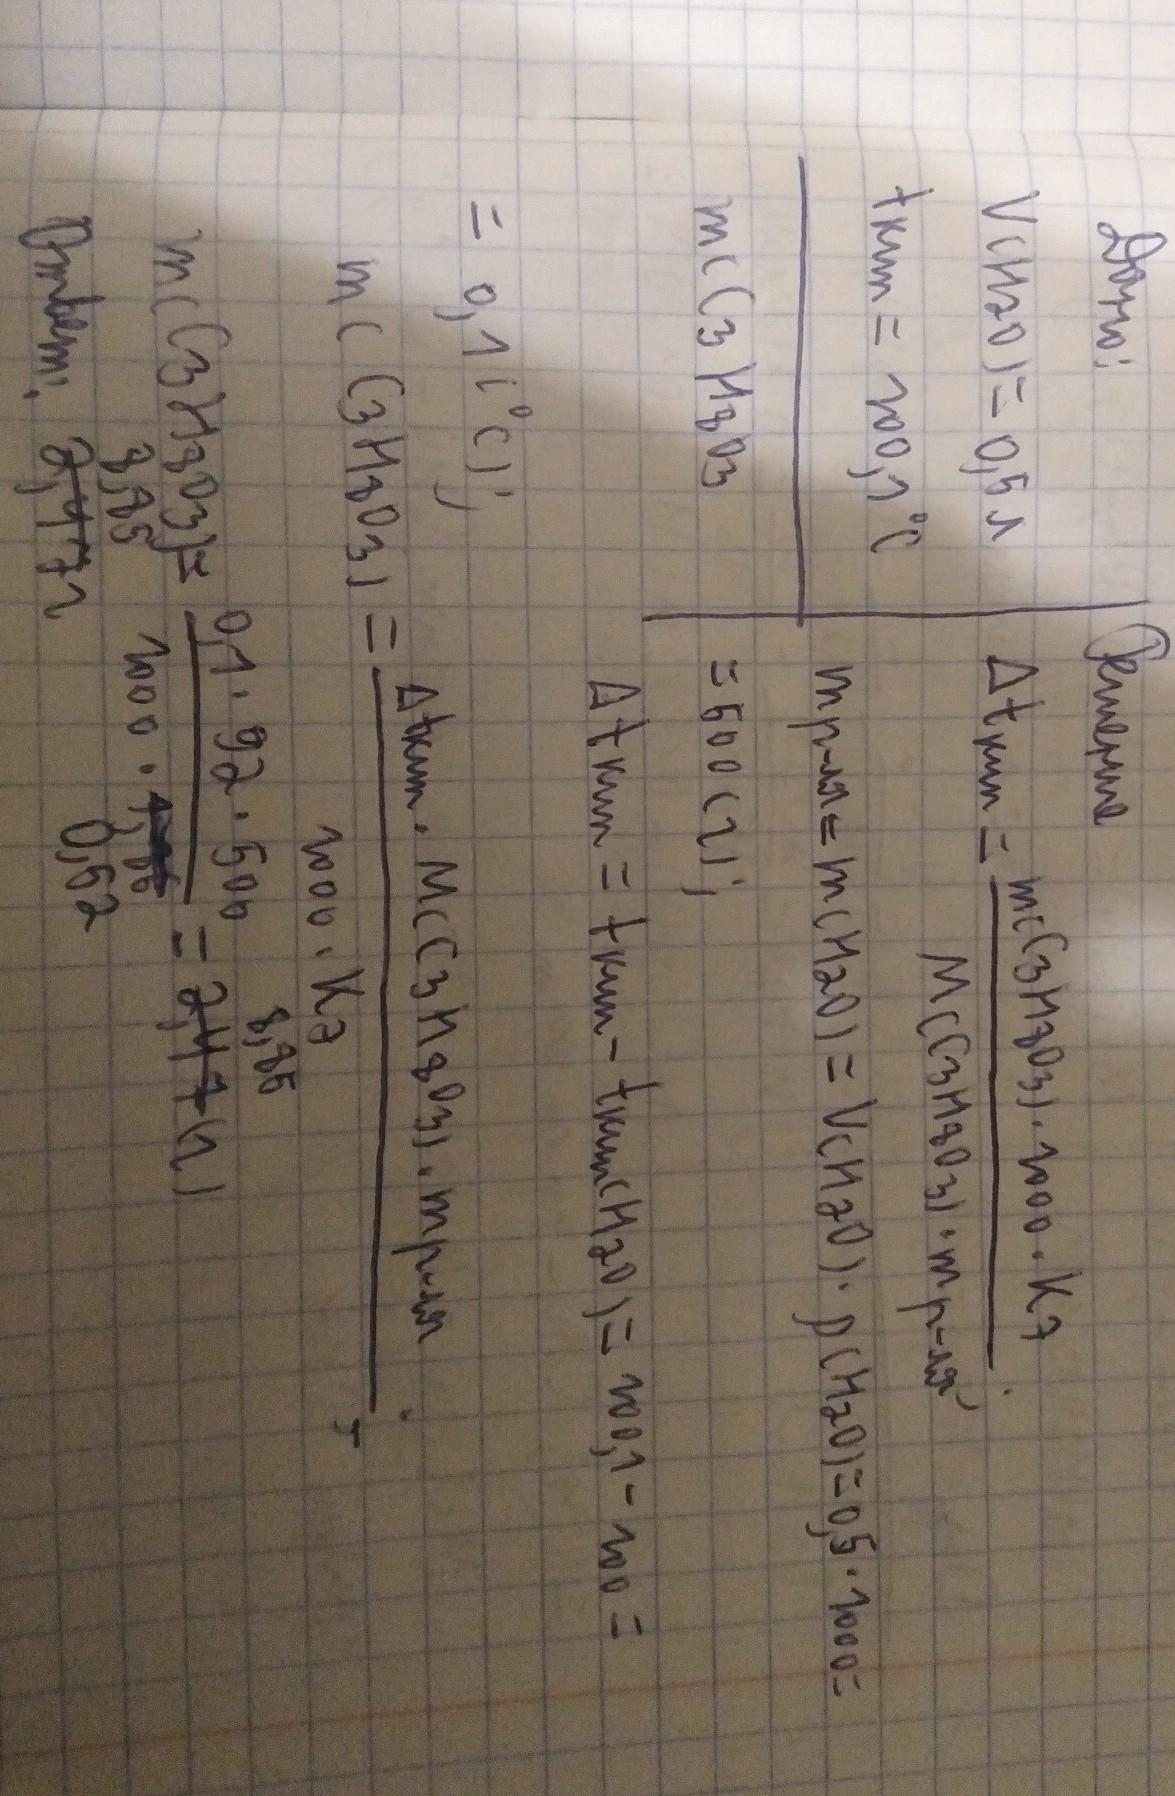 Дано:
V(H2O) = 0,5 л
tкип = 100,1 °C
m(C3H8O3
Решение
Δtкип = m(C3H8O3) · 1000 · Kэ
M(C3H8O3) · mр-ля ;
mр-ля = m(H2O) = V(H2O) · ρ(H2O) = 0,5 · 1000 =
= 500 (г) ;
Δtкип = tкип - tкип(H2O) = 100,1 - 100 =
= 0,1 (°C) ;
m(C3H8O3) = Δtкип · M(C3H8O3) · mр-ля
1000 · Kэ ;
8,85
m(C3H8O3) = 0,1 · 92 · 500 = 2,47 (г)
1000 · 1,86
8,85 0,52
Ответ: 2,47 г